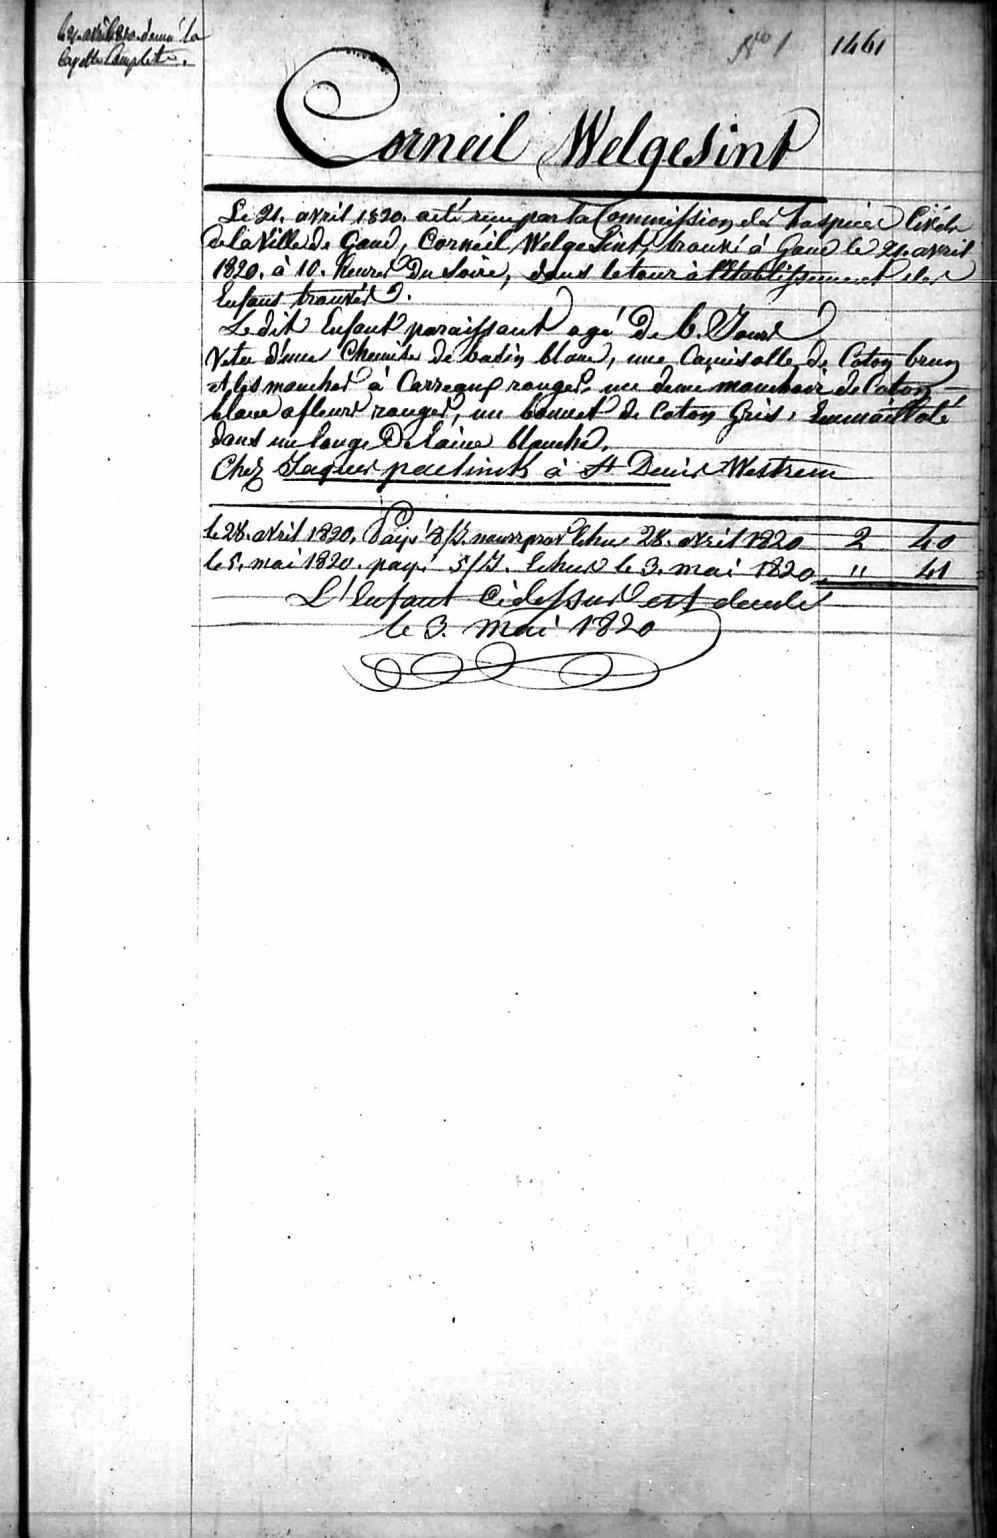 le 21. avril 1820. donné la
layette Complette.
No 1 1461
Corneil Welgesint
Le 21. avril 1820. a été réçu par la Commission des hospices Civils
de la Ville de Gand, Corneil Welgesint, trouvé à Gand le 21. avril
1820. à 10. heures Du Soire, dans le tour à l'Etablissement des
Enfans trouvés.
Le dit Enfant paraissant agé De 6. Jours
Vetu d'une Chemise de basin blanc, une Camisolle de Coton brun
et les manches à Carreaux rouges, un demi mouchoir de Coton
blanc a fleurs rouges, un bonnet de Coton Gris, Emmailloté
dans un lange De laine blanche.
Chez Jaques pauwlinck à St Denis Westrem
le 28. avril 1820. Payé nourr pour Echue 28. avril 1820 2 40
le 5. mai 1820. payé Echus le 3. mai 1820. " 41
L'Enfant Cidessus est decedé
le 3. mai 1820